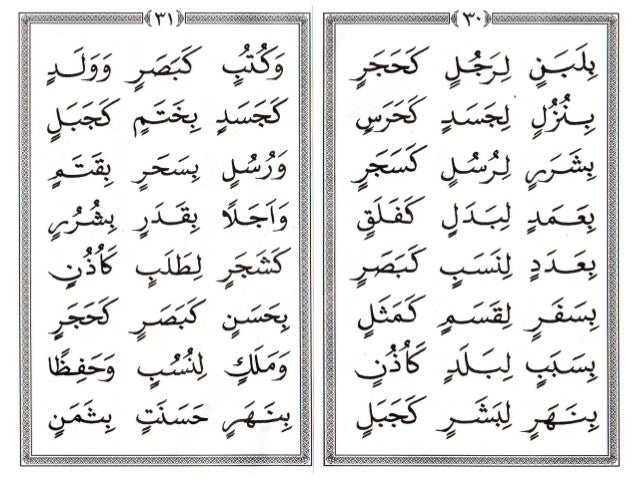 ٣٠
بِلَبَنٍ لِرَجُلٍ كَحَجَرٍ
بِنُزُلٍ لِجَسَدٍ كَحَرَسٍ
بِشَرَرٍ لِرُسُلٍ كَسَجَرٍ
بِعَمَدٍ لِبَدَلٍ كَفَلَقٍ
بِعَدَدٍ لِنَسَبٍ كَبَصَرٍ
بِسَفَرٍ لِقَسَمٍ كَمَثَلٍ
بِسَبَبٍ لِبَلَدٍ كَاُذُنٍ
بِنَهَرٍ لِبَشَرٍ كَجَبَلٍ
٣١
وَكُتُبٍ كَبَصَرٍ وَوَلَدٍ
كَجَسَدٍ بِخَتَمٍ كَجَبَلٍ
وَرُسُلٍ بِسَحَرٍ بِقَتَمٍ
وَاَجَلًا بِقَدَرٍ بِشُرُرٍ
كَشَجَرٍ لِطَلَبٍ كَاُذُنٍ
بِحَسَنٍ كَبَصَرٍ كَحَجَرٍ
وَمَلَكٍ لِنُسُبٍ وَحَفِظًا
بِنَهَرٍ حَسَنَتٍ بِثَمَنٍ